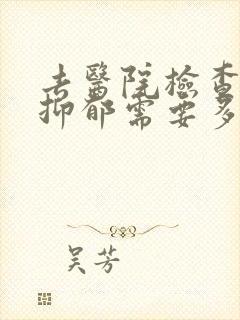 去醫院檢查
抑郁需要多
吴芳